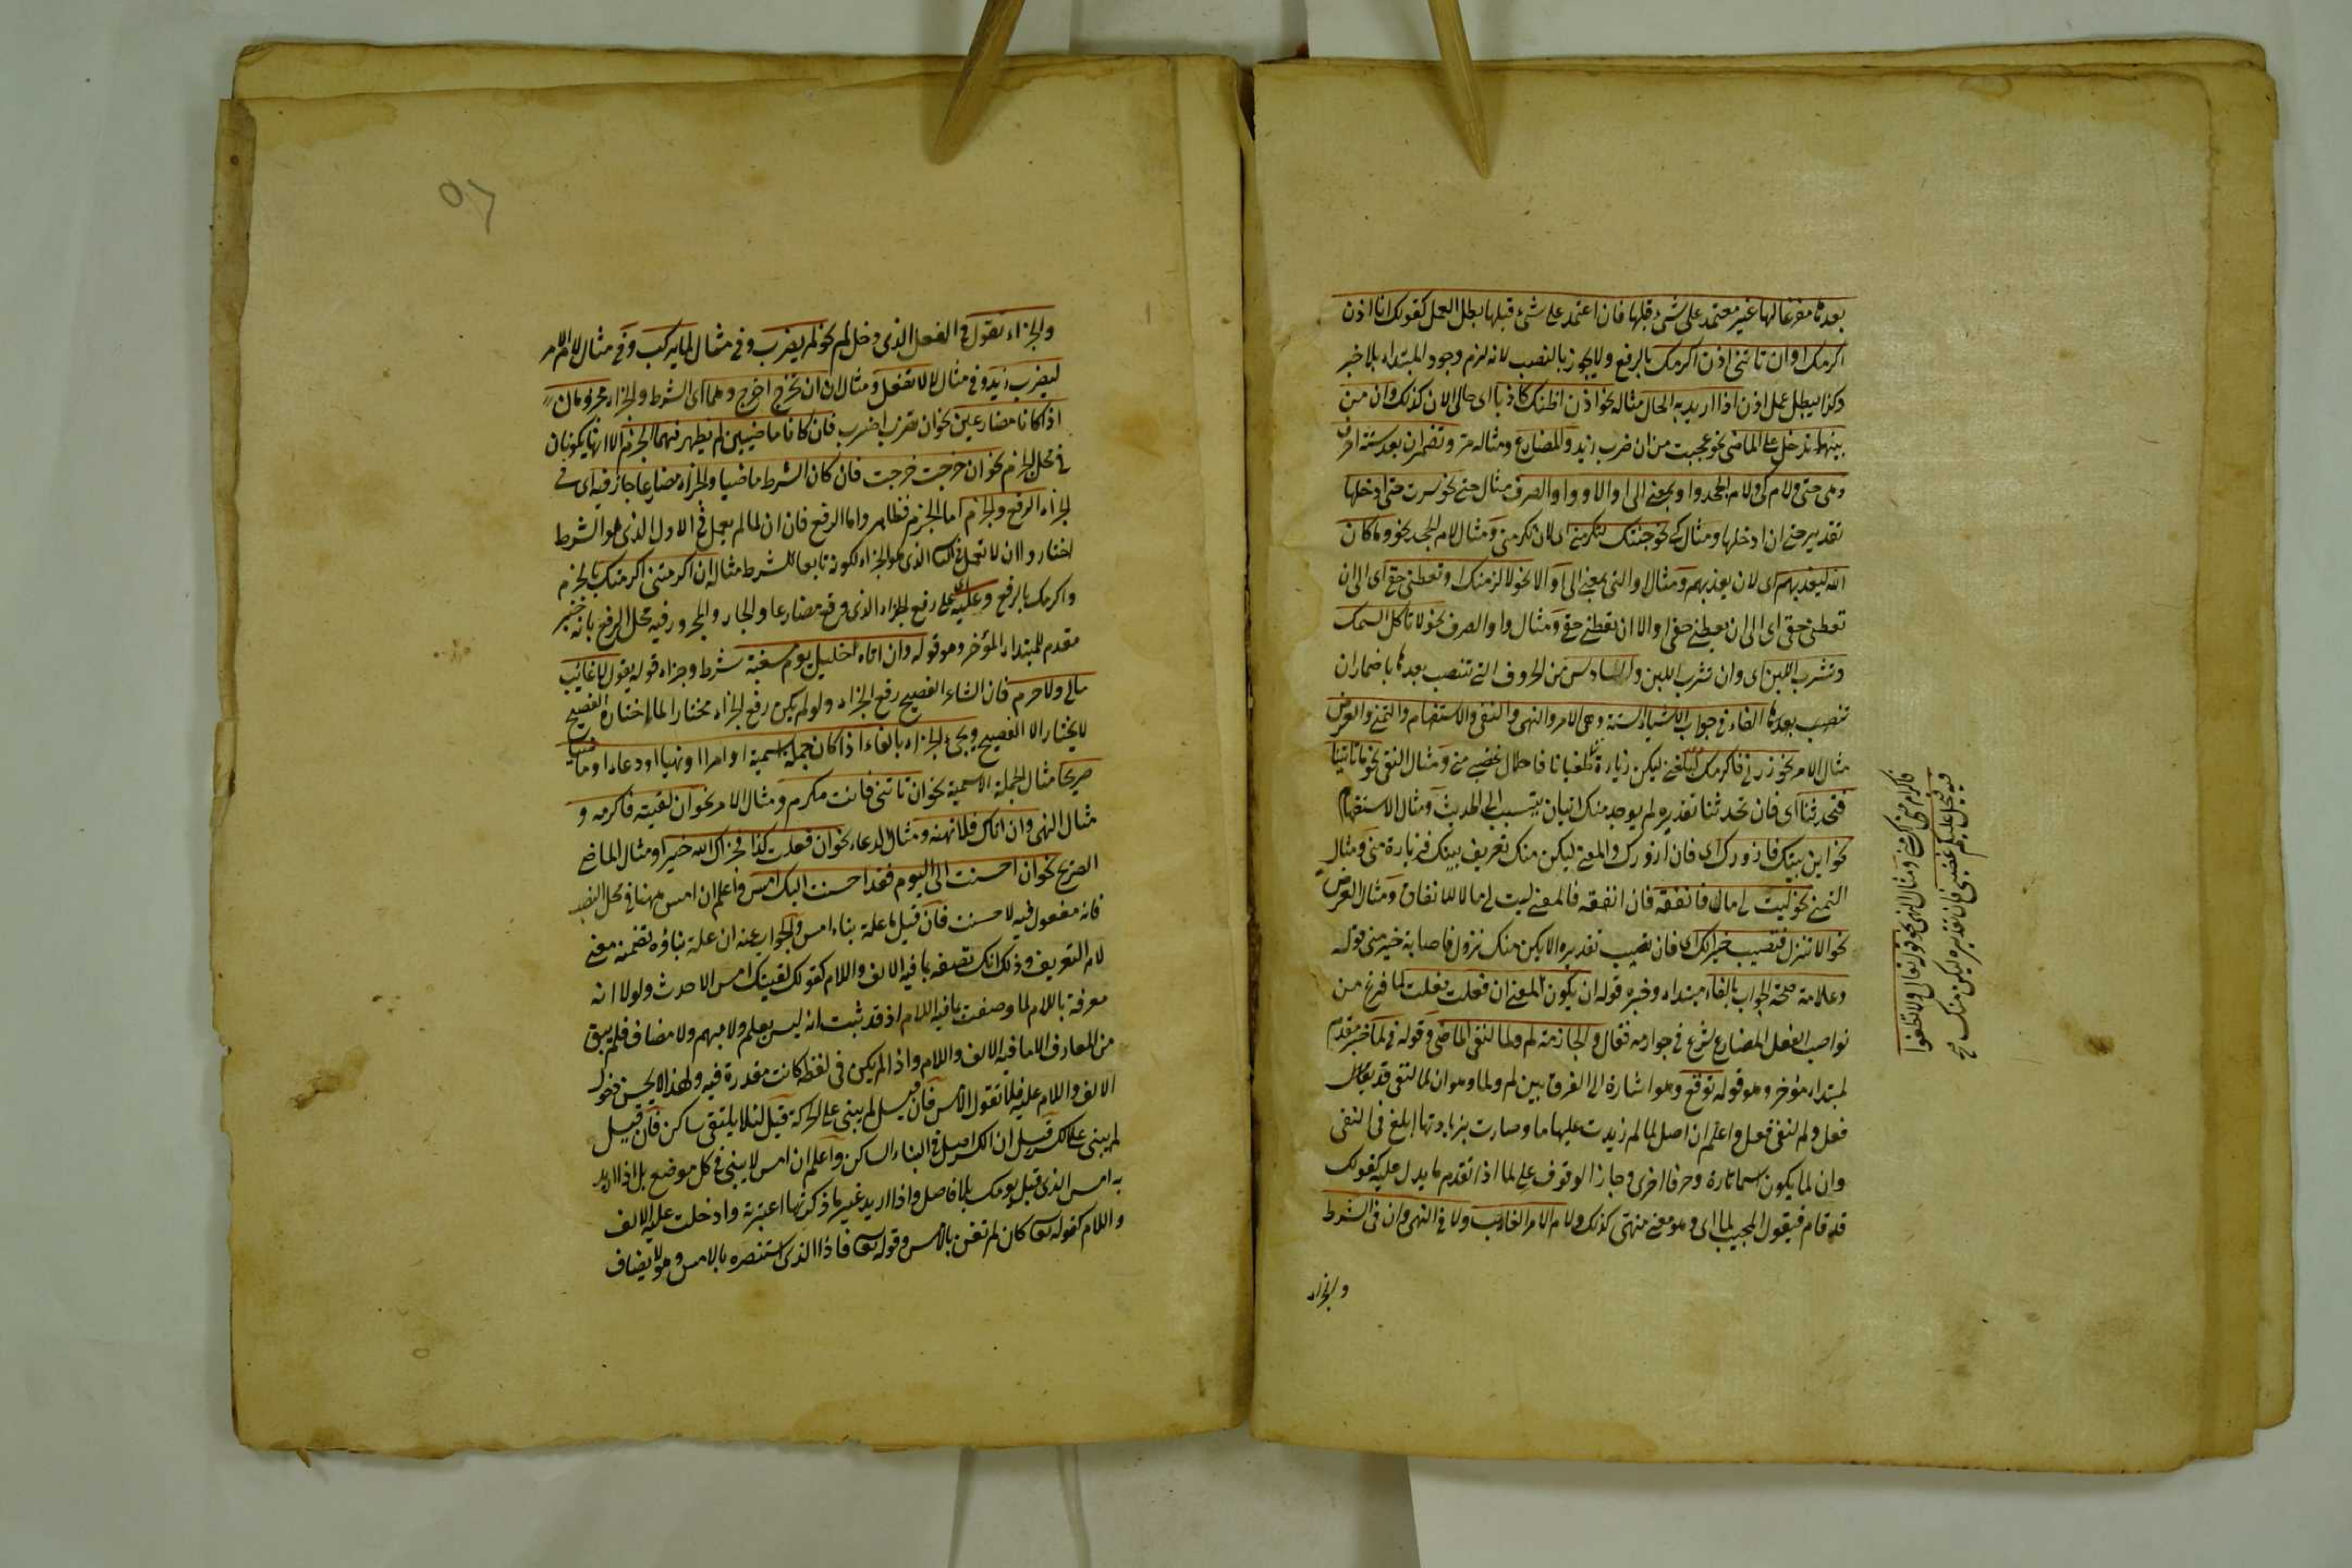 بعدها مفرغا لها غير معتمد على شئ قبلها فان اعتمد على شئ قبلها بطل العمل كقولك انا اذن
اكرمك او ان تاتنى اذن اكرمك بالرفع ولا يجوز بالنصب لانه لزم وجود المبتداء بلا خبر
وكذا يبطل عمل اذن اذا اريد به الحال مثاله نحو اذن اظنك كاذبا اى حالى الان كذلك وان من
بينها تدخل على الماضى نحو عجبت من ان ضرب زيد والمضارع ومثاله مر وتضمر ان بعد ستة احرف
وهى حتى ولام كى ولام الجحد واو بمعنى الى او الا وواو الصرف مثال حتى نحو سرت حتى ادخلها
تقديره حتى ان ادخلها ومثال كى نحو جئتك لتكرمنى اى لان تكرمنى ومثال لام الجحد نحو وما كان
الله ليعذبهم اى لان يعذبهم ومثال او التى بمعنى الى او الا نحو لالزمنك او تعطينى حقى اى الى ان
تعطينى حقى اى الى ان يعطينى حقى او الا ان تعطينى حقى ومثال واو الصرف نحو لا تاكل السمك
وتشرب اللبن اى وان تشرب اللبن والسادس من الحروف التى تنصب بعدها باضمار ان
تنصب بعدها الفاء فى جواب الاشياء الستة وهى الامر والنهى والنفى والاستفهام والتمنى والعرض
مثال الامر نحو زرنى فاكرمك ليكن زيارة طغيانا فاحلال غضبى منى ومثال النفى نحو ما تاتينا
فتحدثنا اى فان تحدثنا تقديره لم يوجد منك اتيان يتسبب الى الحديث ومثال الاستفهام
نحو اين بيتك فازورك اى فان ازورك والمعنى ليكن منك تعريف بيتك فزيارة منى ومثال
التمنى نحو ليت لى مالا فانفقه فان انفقه فالمعنى ليت لى مالا للانفاق ومثال العرض
نحو الا تنزل فتصيب خيرا اى فان تصيب تقديره الا يكن منك نزول فاصابة خير منى قوله
وعلامة صحة الجواب بالفاء مبتداء وخبره قوله ان يكون المعنى ان فعلت فعلت لما فرغ من
نواصب الفعل المضارع شرع فى جوازمه فقال والجازمة لم ولما لنفى الماضى وقوله فى لما خبر مقدم
لمبتداء مؤخر وهو قوله توقع وهو اشارة الى الفرق بين لم ولما وهو ان لما لنفى قد يفعل
فعل ولم لنفى فعل واعلم ان اصل لما لم زيدت عليها ما وصارت بزيادتها ابلغ فى النفى
وان لما يكون اسما تارة وحرفا اخرى وجاز الوقوف على لما اذا تقدم ما يدل عليه كقولك
قد قام فيقول المجيب لما اى وهو معنى منتهى كذلك ولام الامر الغائب ولا فى النهى وان فى الشرط
والجزاء
فاكرام منى لك ومثال النهى نحو قوله تعالى ولا تطغوا
فيه فيحل عليكم غضبى فان تقديره ليكن منك صح
والجزاء تقول فى الفعل الذى دخل لم نحو لم يضرب وفى مثال لما يركب وفى مثال لام الامر
ليضرب زيد وفى مثال لا لا تفعل ومثال ان ان تخرج اخرج وهما اى الشرط والجزاء مجزومان
اذا كانا مضارعين نحو ان تضرب اضرب فان كانا ماضيين لم يظهر فيهما الجزم الا انهما يكونان
فى محل الجزم نحو ان خرجت خرجت فان كان الشرط ماضيا والجزاء مضارعا جاز فيه اى فى
الجزاء الرفع والجزم اما الجزم فظاهر واما الرفع فان ان لما لم يعمل فى الاول الذى هو الشرط
اختاروا ان لا تعمل فى الثانى الذى هو الجزاء لكونه تابعا للشرط مثاله ان اكرمتنى اكرمتك بالجزم
واكرمك بالرفع وعليه على رفع الجزاء الذى وقع مضارعا والجار والمجرور فيه محل الرفع بانه خبر
مقدم للمبتداء المؤخر وهو قوله وان اتاه خليل يوم مسغبة شرط وجزاه قوله يقول لا غائب
مالى ولا حرم فان الشاعر الفصيح رفع الجزاء ولو لم يكن رفع الجزاء مختارا لما اختاره الفصيح
لا يختار الا الفصيح ويجئ الجزاء بالفاء اذا كان جملة اسمية او امرا او نهيا او دعاء او ماضيا
صريحا مثال الجملة الاسمية نحو ان تاتنى فانت مكرم ومثال الامر نحو ان لقيته فاكرمه و
مثال النهى وان اتاك فلا تهنه ومثال الدعاء نحو ان فعلت كذا فجزاك الله خيرا ومثال الماضى
الصريح نحو ان احسنت الى اليوم فقد احسنت اليك امس واعلم ان امس ههنا فى محل النصب
فانه مفعول فيه لاحسنت فان قيل ما علة بناء امس والجواب عنه ان علة بناؤه تضمنه معنى
لام التعريف وذلك انك تصفه بما فيه الالف واللام كقولك لقيتك امس الاحدث ولولا انه
معرفة باللام لما وصفت بما فيه اللام اذ قد ثبت انه ليس بعلم ولا مبهم ولا مضاف فلم يبق
من المعارف الا ما فيه الالف واللام واذ الم يكن فى لفظه كانت مقدرة فيه ولهذا لا يحسن دخول
الالف واللام عليه فلا تقول الامس فان قيل لم يبنى على الحركة قيل لئلا يلتقى ساكن فان قيل
لم يبنى على الكسر قيل ان الكسر اصل فى البناء الساكن واعلم ان امس لا يبنى فى كل موضع بل اذا اريد
به امس الذى قبل يومك بلا فاصل واذا اريد غير ما ذكرتها اعتبرته وادخلت عليه الالف
واللام كقوله تعا كان لم تغن بالامس وقوله تعا فاذا الذى استنصره بالامس وهو لا يضاف